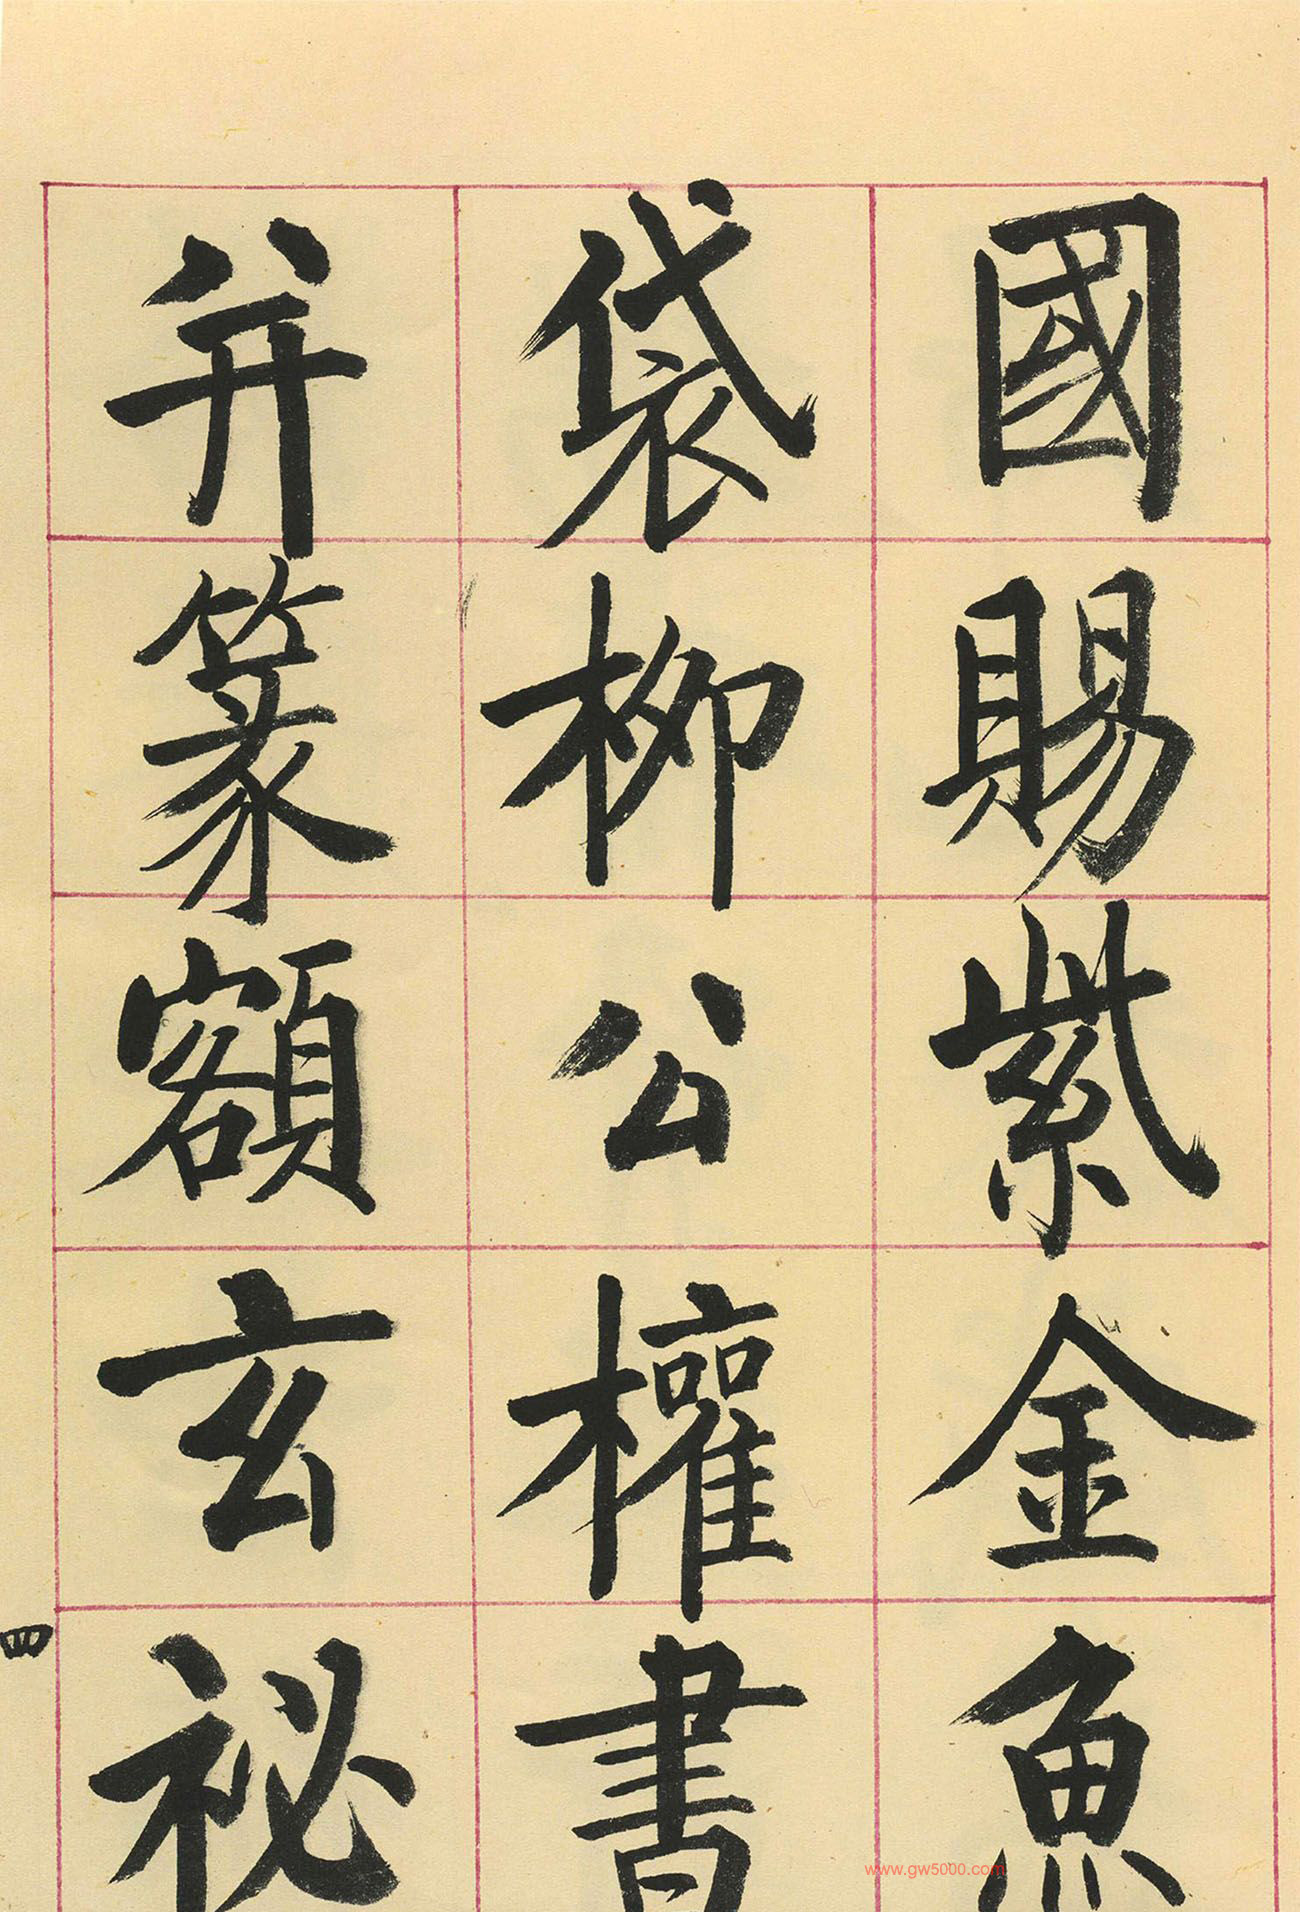 國賜紫金魚
袋柳公權書
并篆額玄祕
四
www.gw5000.com